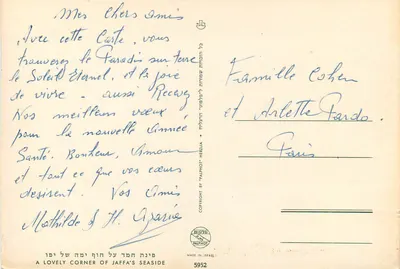 Mes chers amis
Avec cette Carte, vous
trouverez le Paradis sur terre
le Soleil Eternel, et la joie
de vivre - aussi Recevez
Nos meilleurs vœux
pour la nouvelle année
Santé, Bonheur, Amour
et tout ce que vos cœurs
desirent. Vos amis
Mathilde & H.
פינת חמד על חוף ימה של יפו
A LOVELY CORNER OF JAFFA'S SEASIDE
כל הזכויות שמורות ל"פלפוט" הרצליה
COPYRIGHT BY "PALPHOT" HERZLIA
Famille Cohen
et Arlette Pardo.
Paris
MADE IN ISRAEL
5952